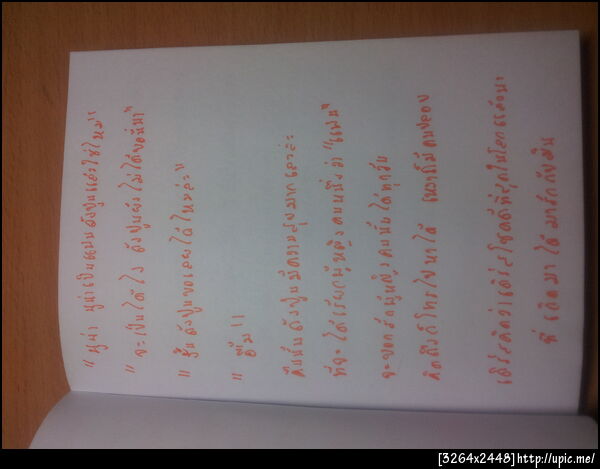 " มูน่า มูน่าเป็นแฟนลังปูนแล้วใช่ไหม "
" จะเป็นได้ไง ลังปูนยังไม่ได้ขอนี่นา "
" งั้นลังปูนขอเลยได้ไหมล่ะ "
" อื้ม "
คืนนั้นลังปูนมีความสุขมากเลวล่ะ
ที่จะได้เรียกผู้หญิงคนหนึ่งว่า "แฟน"
จะบอกรักผู้หญิงคนนั้นได้ทุกวัน
คิดถึงก็โทรไปหาได้ เหงาก็มีคนปลอบ
เชื่อว่าโชคดีที่สุดในโลกแล้ว
ที่เกิดมาได้มารักกัน
[3264x2448]http://upic.me/